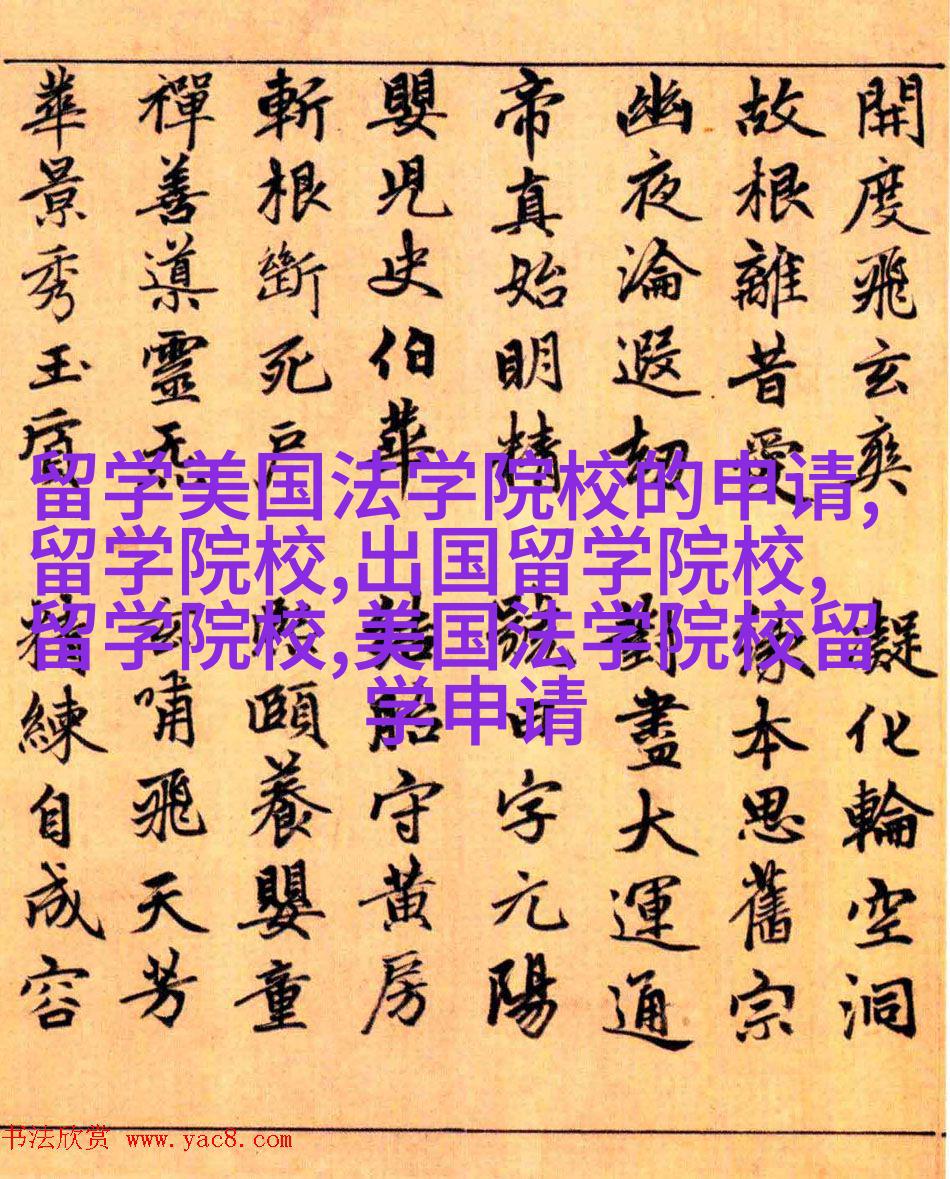 開度飛玄爽 凝化輪空洞
故根離昔受 緣本思舊宗
幽夜淪遐劫 對盡大運通
帝真始明精 號曰字元陽
嬰兒史伯華 胎守黃房
斬根斷死戶 頤養嬰童
禪善導靈 玄嘯飛天芳
華景秀玉質 精練自成容
留学美国法学院校的申请,
留学院校,出国留学院校,
留学院校,美国法学院校留
学申请
书法欣赏 www.yac8.com